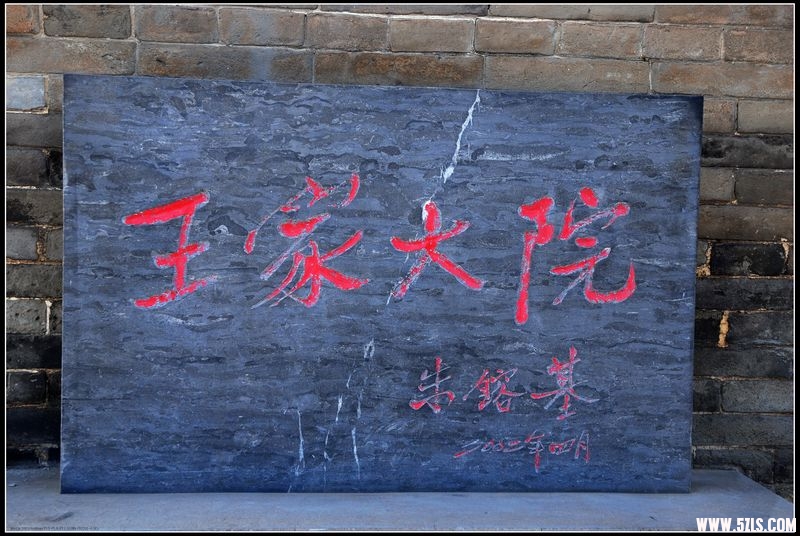 王家大院
朱镕基
2002年四月
WWW.5ZLS.COM